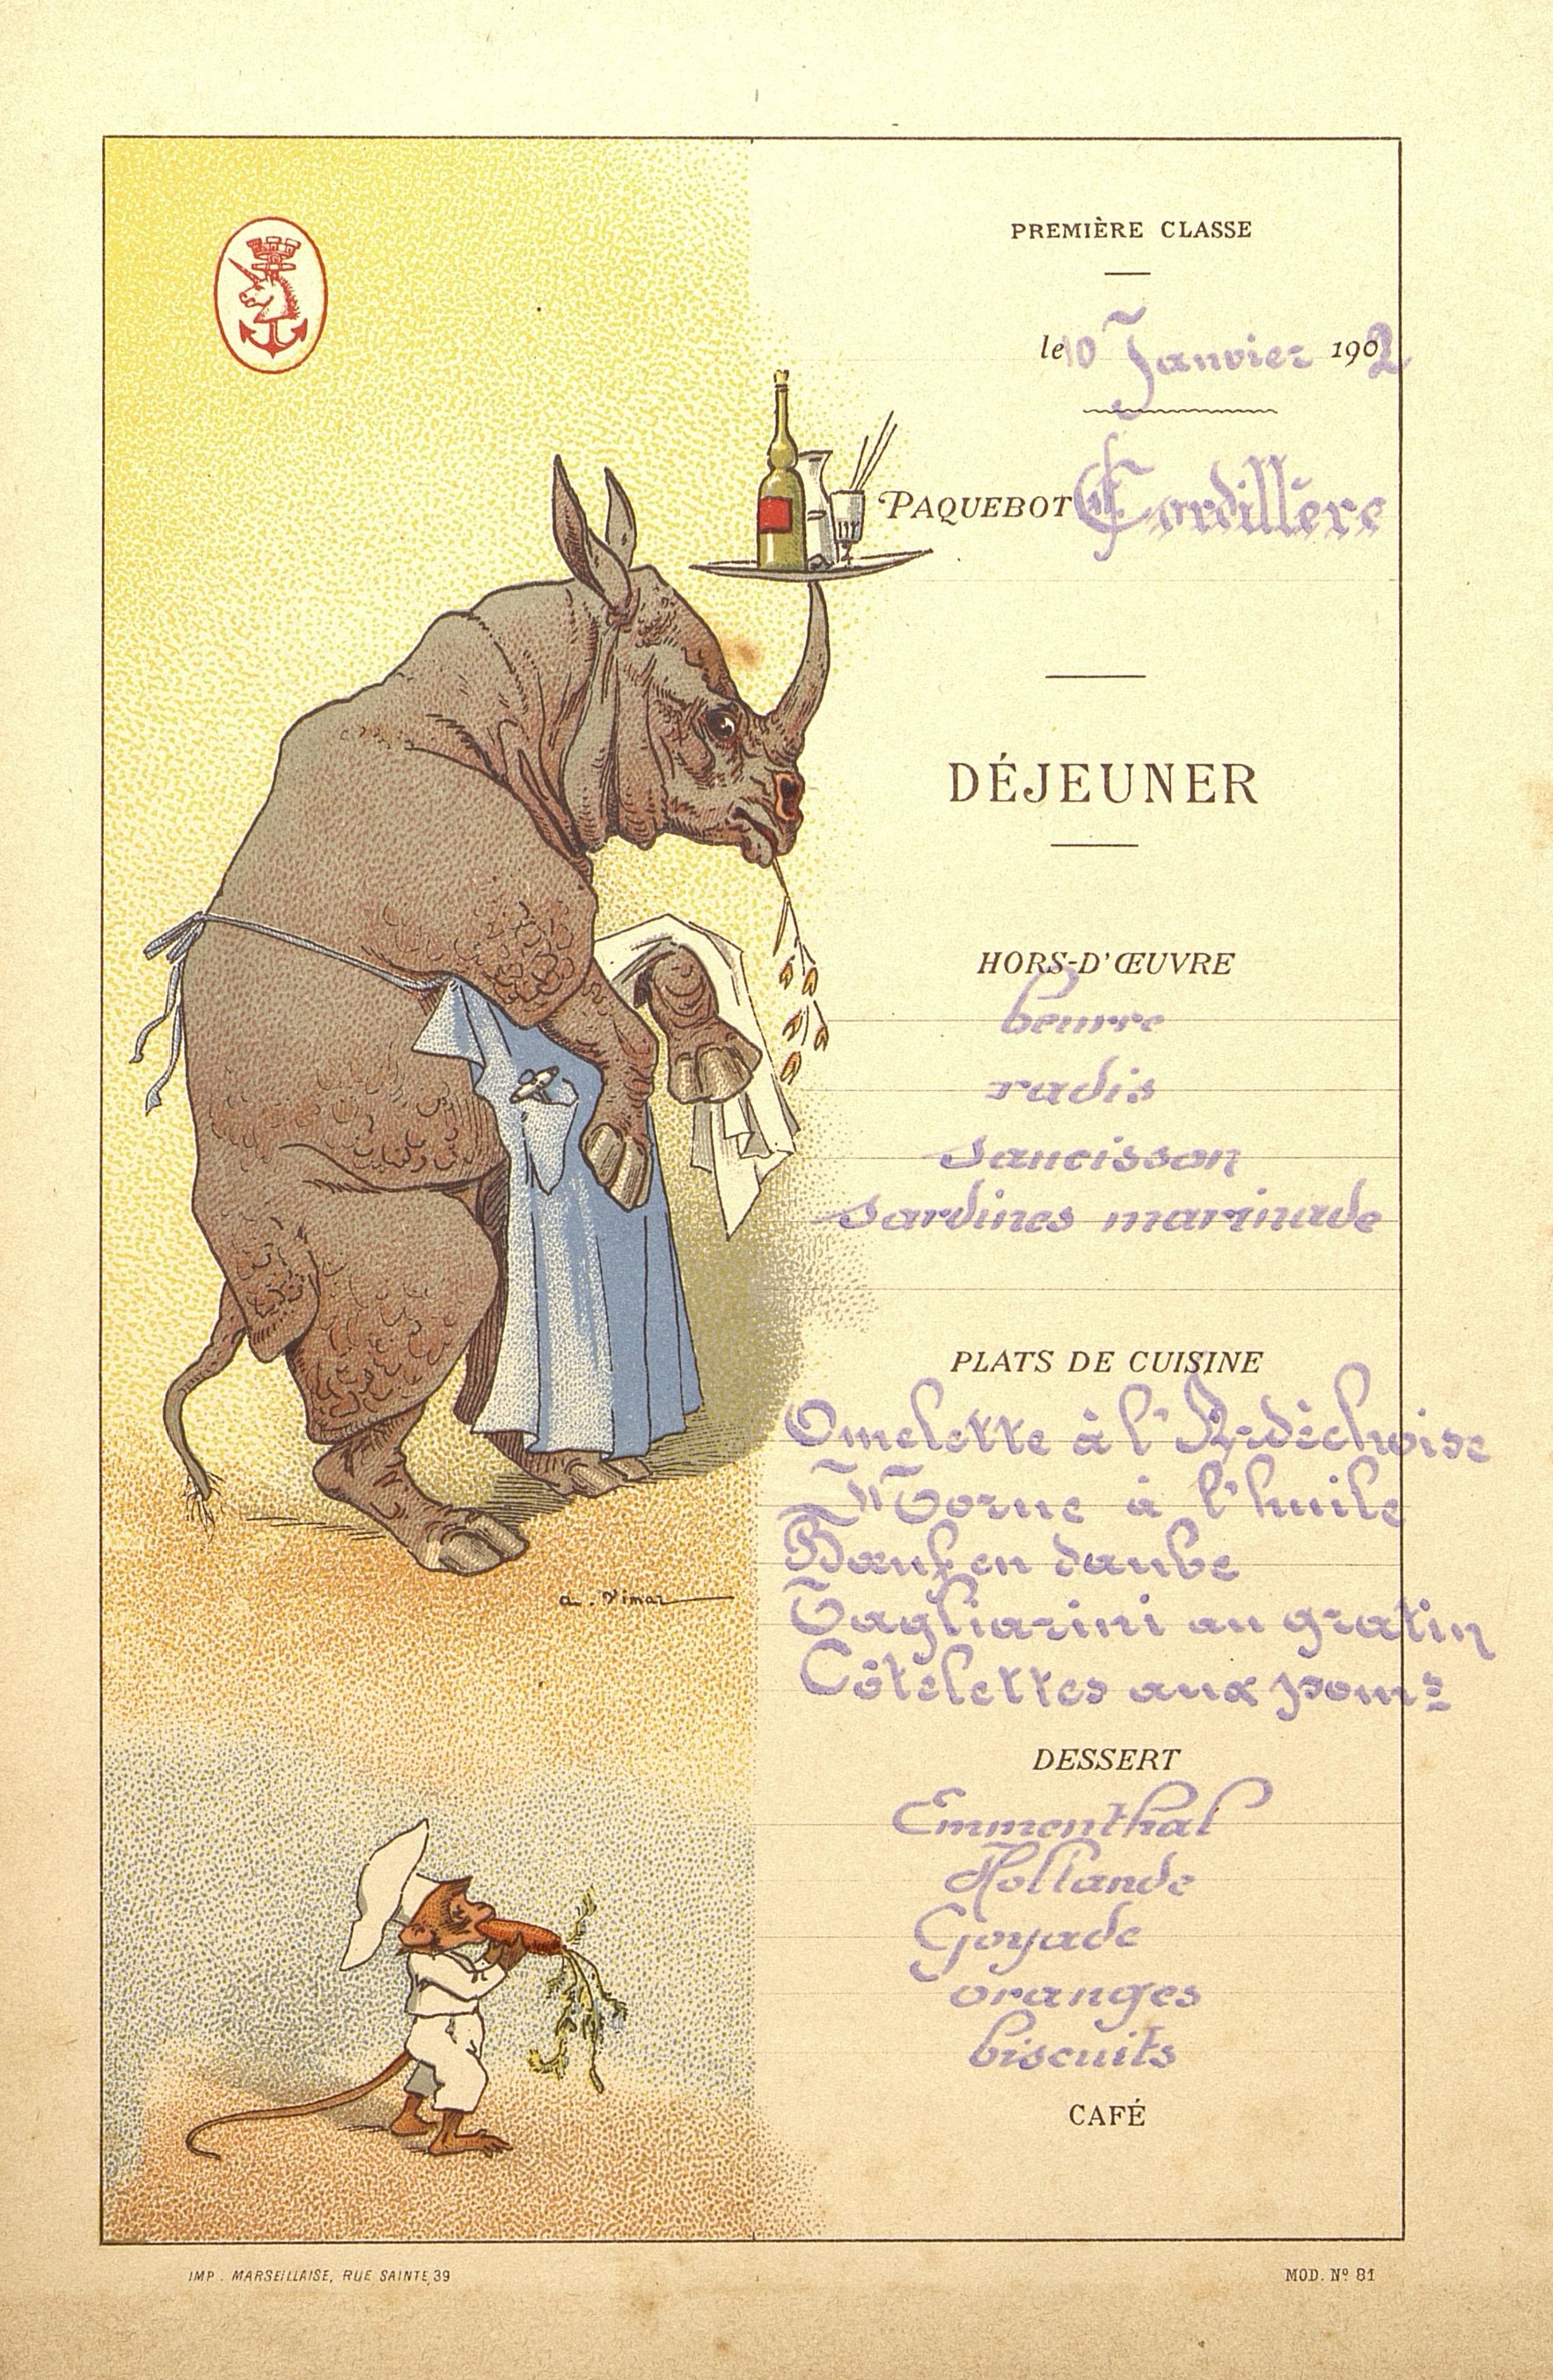 PREMIÈRE CLASSE
le 10 Janvier 1902
PAQUEBOT Cordillère
DÉJEUNER
HORS-D'ŒUVRE
beurre
radis
saucisson
sardines marinade
PLATS DE CUISINE
Omelette à l'Ardèchoise
Morue à l'huile
Bœuf en daube
Tagliarini au gratin
Côtelettes aux pom.s
DESSERT
Emmenthal
Hollande
Goyade
oranges
biscuits
CAFÉ
a. Vimar
IMP. MARSEILLAISE, RUE SAINTE, 39
MOD. Nº 81